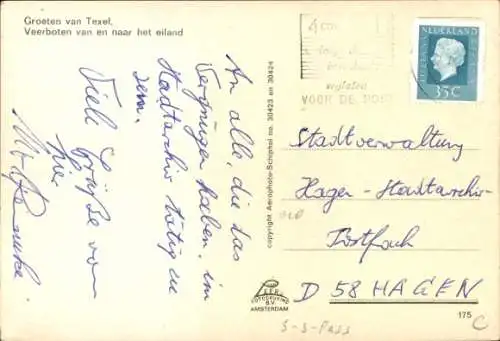 Groeten van Texel.
Veerboten van en naar het eiland
An alle, die das
Vergnügen haben, im
Stadtarchiv tätig zu
sein.
Viele Grüße von
hier
copyright Aerophoto-Schiphol no. 30423 en 30424
4 cm
vrijlaten
VOOR DE POST
NEDERLAND
35C
Stadtverwaltung
Hagen - Stadtarchiv -
Postfach
D 58 HAGEN
FOTODRUKKERIJ
B.V.
AMSTERDAM
175
S-S-Pass
C